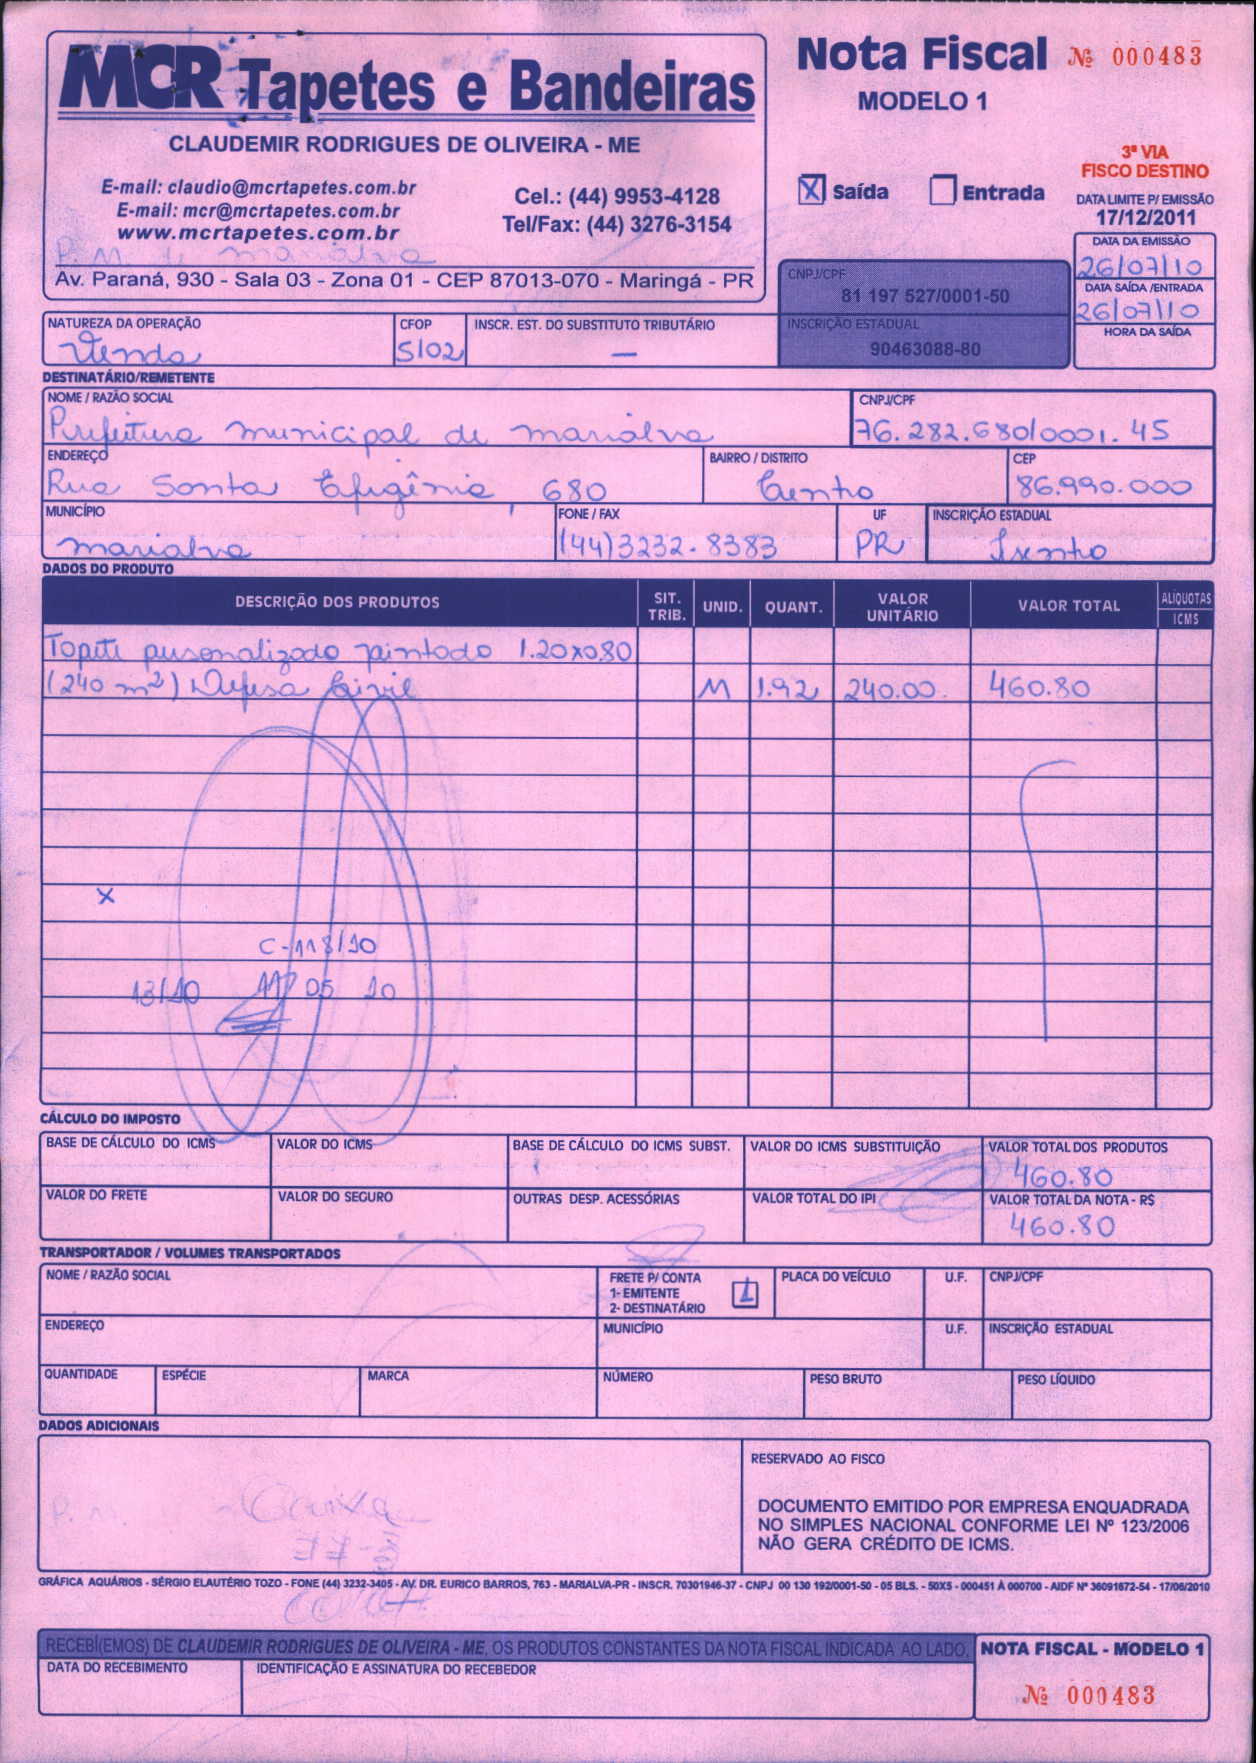 MCR Tapetes e Bandeiras
CLAUDEMIR RODRIGUES DE OLIVEIRA - ME
E-mail: claudio@mcrtapetes.com.br
E-mail: mcr@mcrtapetes.com.br
www.mcrtapetes.com.br
Cel.: (44) 9953-4128
Tel/Fax: (44) 3276-3154
P. M. de marialva
Av. Paraná, 930 - Sala 03 - Zona 01 - CEP 87013-070 - Maringá - PR
Nota Fiscal Nº 000483
MODELO 1
3ª VIA
FISCO DESTINO
X Saída Entrada
DATA LIMITE P/ EMISSÃO
17/12/2011
DATA DA EMISSÃO
26/07/10
DATA SAÍDA /ENTRADA
26/07/10
HORA DA SAÍDA
CNPJ/CPF
81 197 527/0001-50
INSCRIÇÃO ESTADUAL
90463088-80
NATUREZA DA OPERAÇÃO CFOP INSCR. EST. DO SUBSTITUTO TRIBUTÁRIO
Venda 5102 —
DESTINATÁRIO/REMETENTE
NOME / RAZÃO SOCIAL CNPJ/CPF
Prefeitura municipal de marialva 76.282.680/0001.45
ENDEREÇO BAIRRO / DISTRITO CEP
Rua Santa Efigênia, 680 Centro 86.990.000
MUNICÍPIO FONE / FAX UF INSCRIÇÃO ESTADUAL
marialva (44)3232.8383 PR Isento
DADOS DO PRODUTO
DESCRIÇÃO DOS PRODUTOS SIT. TRIB. UNID. QUANT. VALOR UNITÁRIO VALOR TOTAL ALÍQUOTAS ICMS
Tapete personalizado pintado 1.20x0.80
(240 m²) Defesa Civil M 1.92 240.00 460.80
X
C-118/10
13/10 117 05 10
CÁLCULO DO IMPOSTO
BASE DE CÁLCULO DO ICMS VALOR DO ICMS BASE DE CÁLCULO DO ICMS SUBST. VALOR DO ICMS SUBSTITUIÇÃO VALOR TOTAL DOS PRODUTOS
460.80
VALOR DO FRETE VALOR DO SEGURO OUTRAS DESP. ACESSÓRIAS VALOR TOTAL DO IPI VALOR TOTAL DA NOTA - R$
460.80
TRANSPORTADOR / VOLUMES TRANSPORTADOS
NOME / RAZÃO SOCIAL FRETE P/ CONTA PLACA DO VEÍCULO U.F. CNPJ/CPF
1- EMITENTE 1
2- DESTINATÁRIO
ENDEREÇO MUNICÍPIO U.F. INSCRIÇÃO ESTADUAL
QUANTIDADE ESPÉCIE MARCA NÚMERO PESO BRUTO PESO LÍQUIDO
DADOS ADICIONAIS
RESERVADO AO FISCO
DOCUMENTO EMITIDO POR EMPRESA ENQUADRADA
NO SIMPLES NACIONAL CONFORME LEI Nº 123/2006
NÃO GERA CRÉDITO DE ICMS.
P. M.
GRÁFICA AQUÁRIOS - SÉRGIO ELAUTÉRIO TOZO - FONE (44) 3232-3405 - AV. DR. EURICO BARROS, 763 - MARIALVA-PR - INSCR. 70301946-37 - CNPJ 00 130 192/0001-50 - 05 BLS. - 50X5 - 000451 À 000700 - AIDF Nº 36091672-54 - 17/06/2010
RECEBI(EMOS) DE CLAUDEMIR RODRIGUES DE OLIVEIRA - ME, OS PRODUTOS CONSTANTES DA NOTA FISCAL INDICADA AO LADO.
DATA DO RECEBIMENTO IDENTIFICAÇÃO E ASSINATURA DO RECEBEDOR
NOTA FISCAL - MODELO 1
Nº 000483